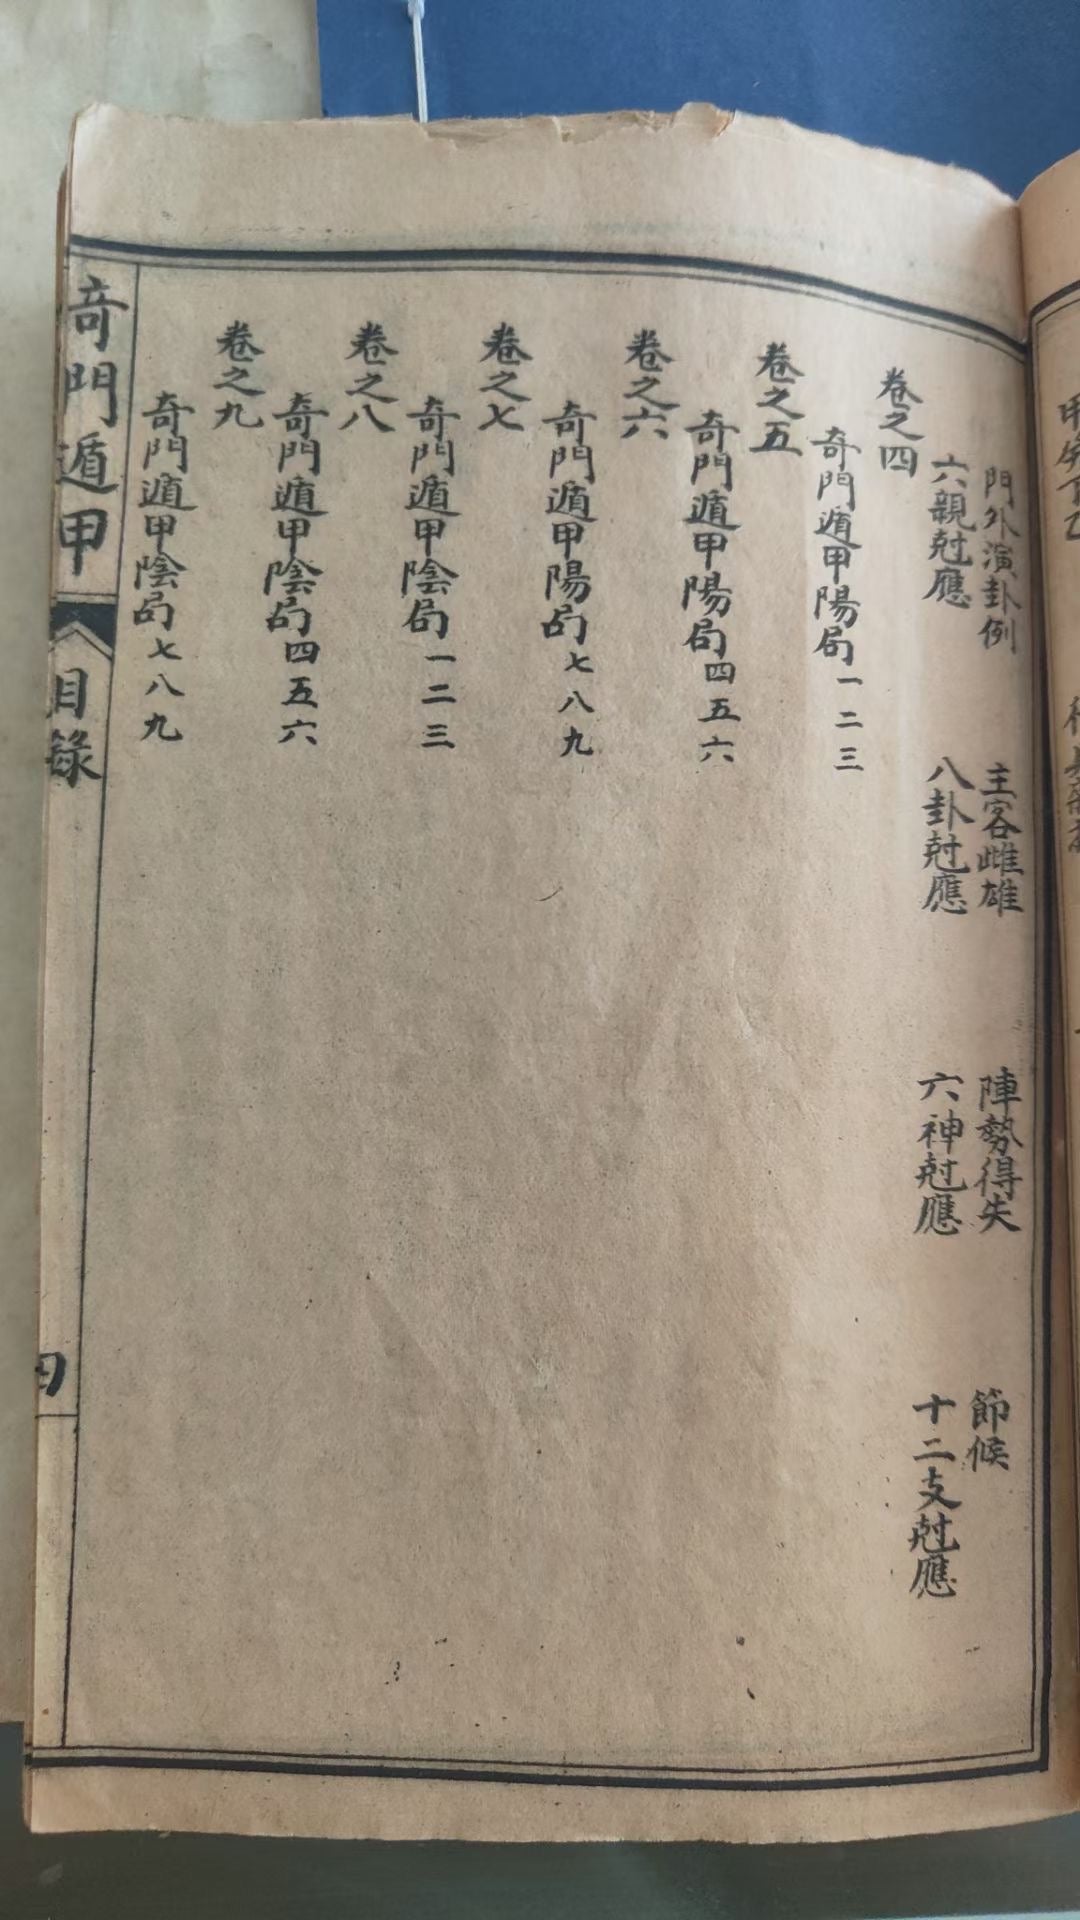 門外演卦例 主客雌雄 陣勢得失 節候
六親尅應 八卦尅應 六神尅應 十二支尅應
卷之四
奇門遁甲陽局一二三
卷之五
奇門遁甲陽局四五六
卷之六
奇門遁甲陽局七八九
卷之七
奇門遁甲陰局一二三
卷之八
奇門遁甲陰局四五六
卷之九
奇門遁甲陰局七八九
奇門遁甲 目錄 四